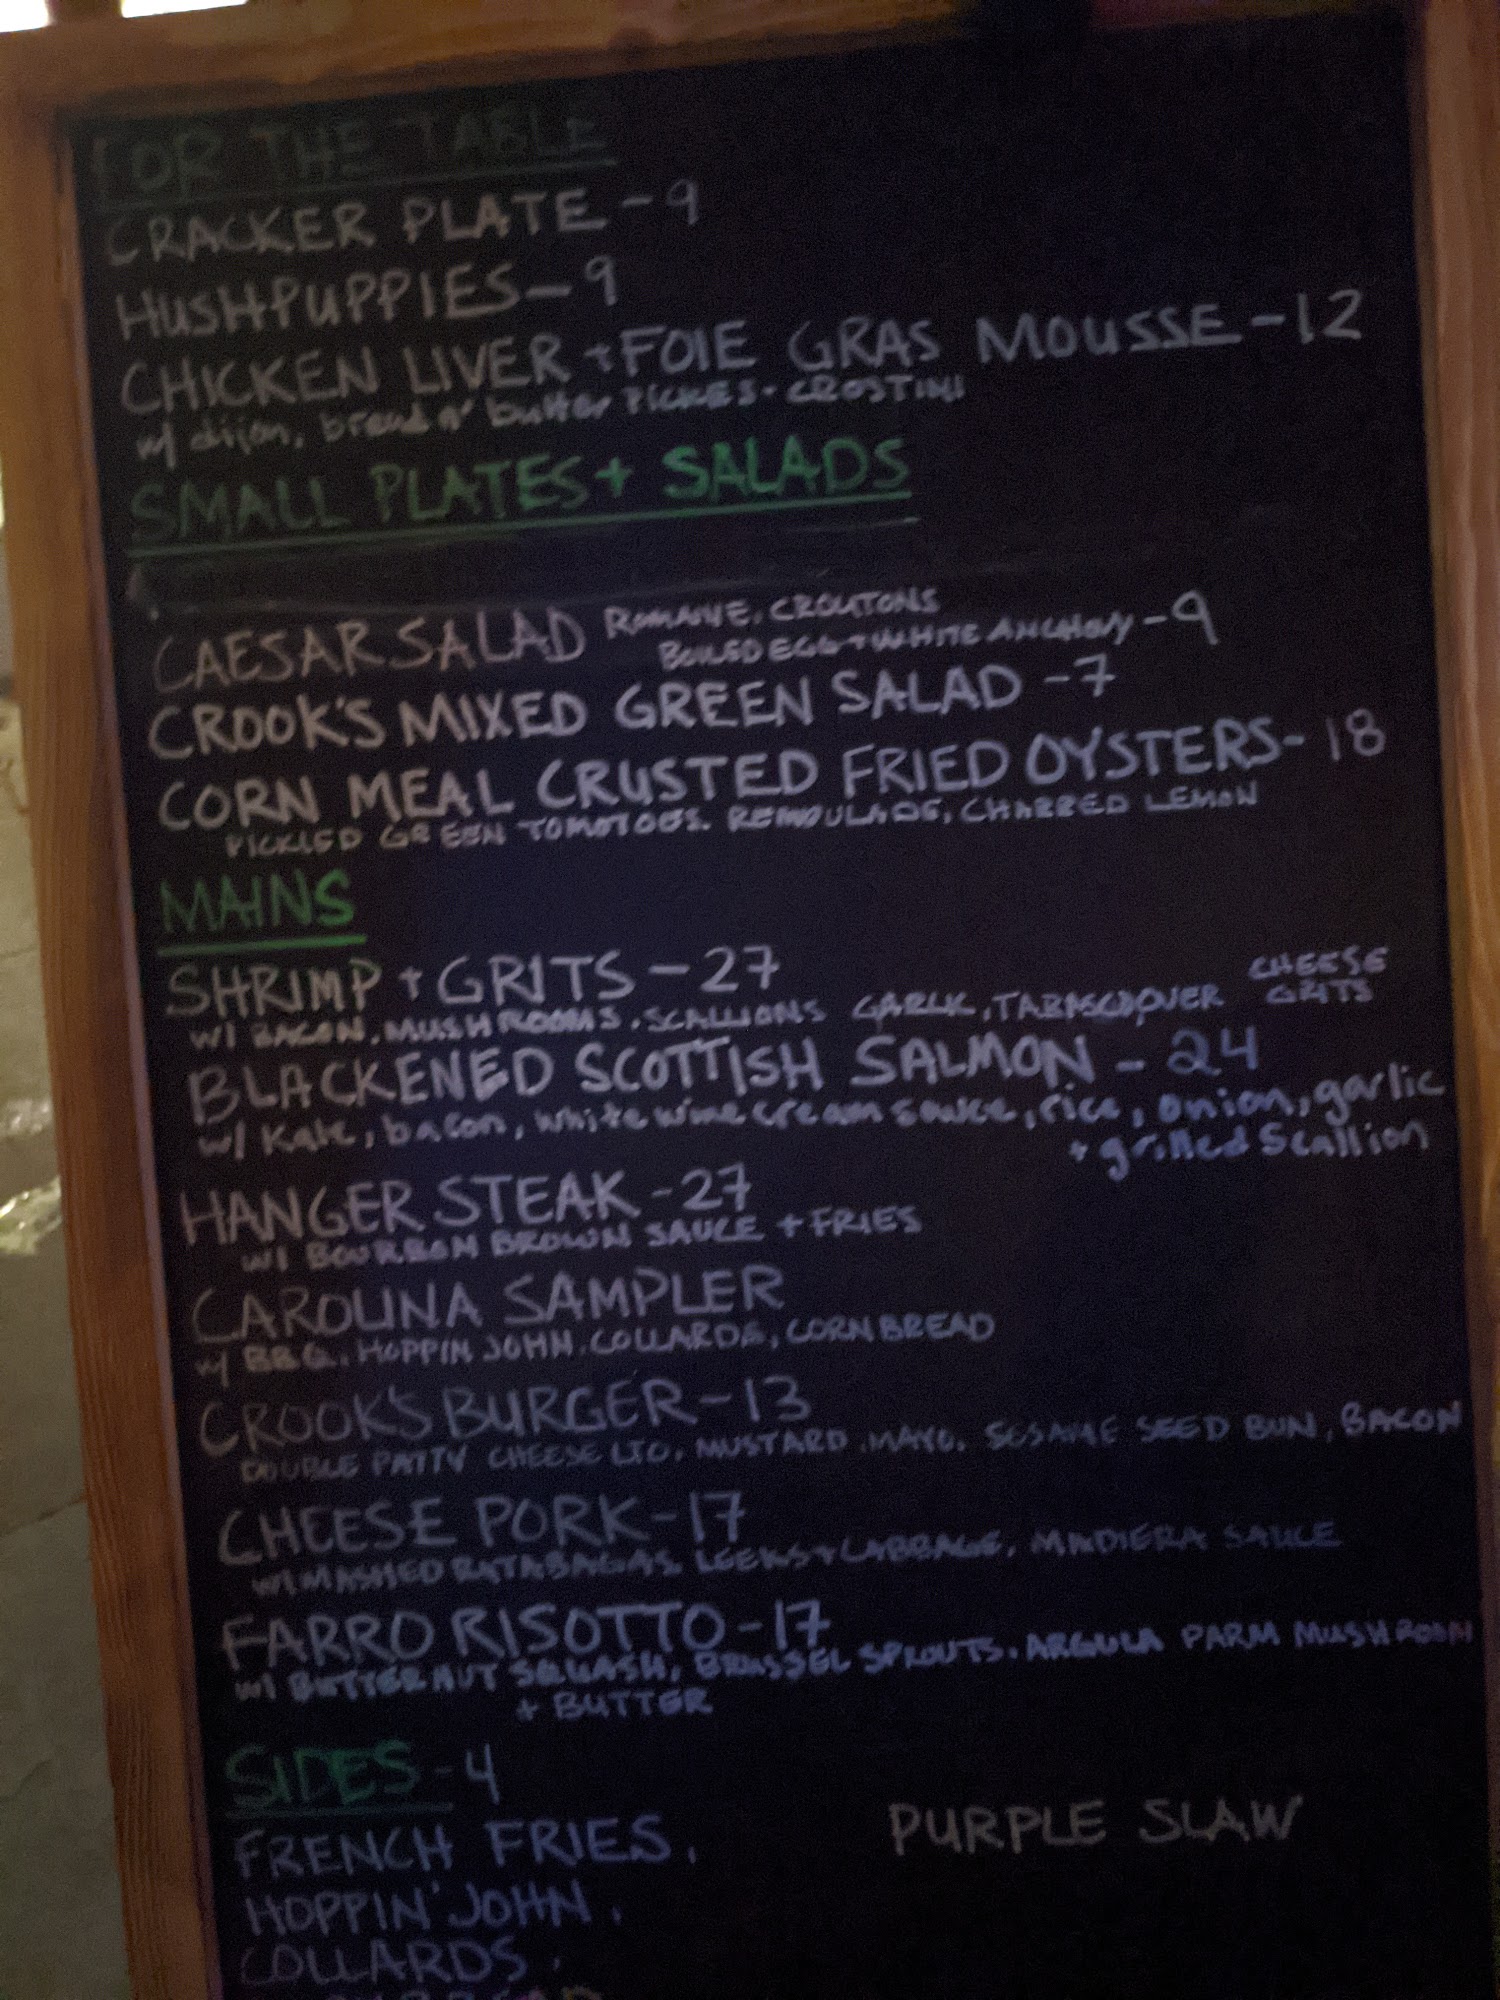 FOR THE TABLE
CRACKER PLATE - 9
HUSHPUPPIES - 9
CHICKEN LIVER + FOIE GRAS MOUSSE - 12
w/ dijon, bread n' butter PICKLES - CROSTINI
SMALL PLATES + SALADS
CAESAR SALAD ROMAINE, CROUTONS
BOILED EGG + WHITE ANCHOVY - 9
CROOK'S MIXED GREEN SALAD - 7
CORN MEAL CRUSTED FRIED OYSTERS - 18
PICKLED GREEN TOMOTOES. REMOULADE, CHARRED LEMON
MAINS
SHRIMP + GRITS - 27
W/ BACON, MUSHROOMS, SCALLIONS GARLIC, TABASCO, OVER CHEESE GRITS
BLACKENED SCOTTISH SALMON - 24
w/ Kale, bacon, white wine cream sauce, rice, onion, garlic
+ grilled Scallion
HANGER STEAK - 27
W/ BOURBON BROWN SAUCE + FRIES
CAROLINA SAMPLER
w/ BBQ, HOPPIN JOHN, COLLARDS, CORNBREAD
CROOK'S BURGER - 13
DOUBLE PATTY CHEESE LTO, MUSTARD, MAYO, SESAME SEED BUN, BACON
CHEESE PORK - 17
W/ MASHED RATABAGAS, LEEKS + CABBAGE, MADIERA SAUCE
FARRO RISOTTO - 17
W/ BUTTERNUT SQUASH, BRUSSEL SPROUTS, ARGULA PARM MUSHROOM
+ BUTTER
SIDES - 4
FRENCH FRIES, PURPLE SLAW
HOPPIN' JOHN,
COLLARDS,